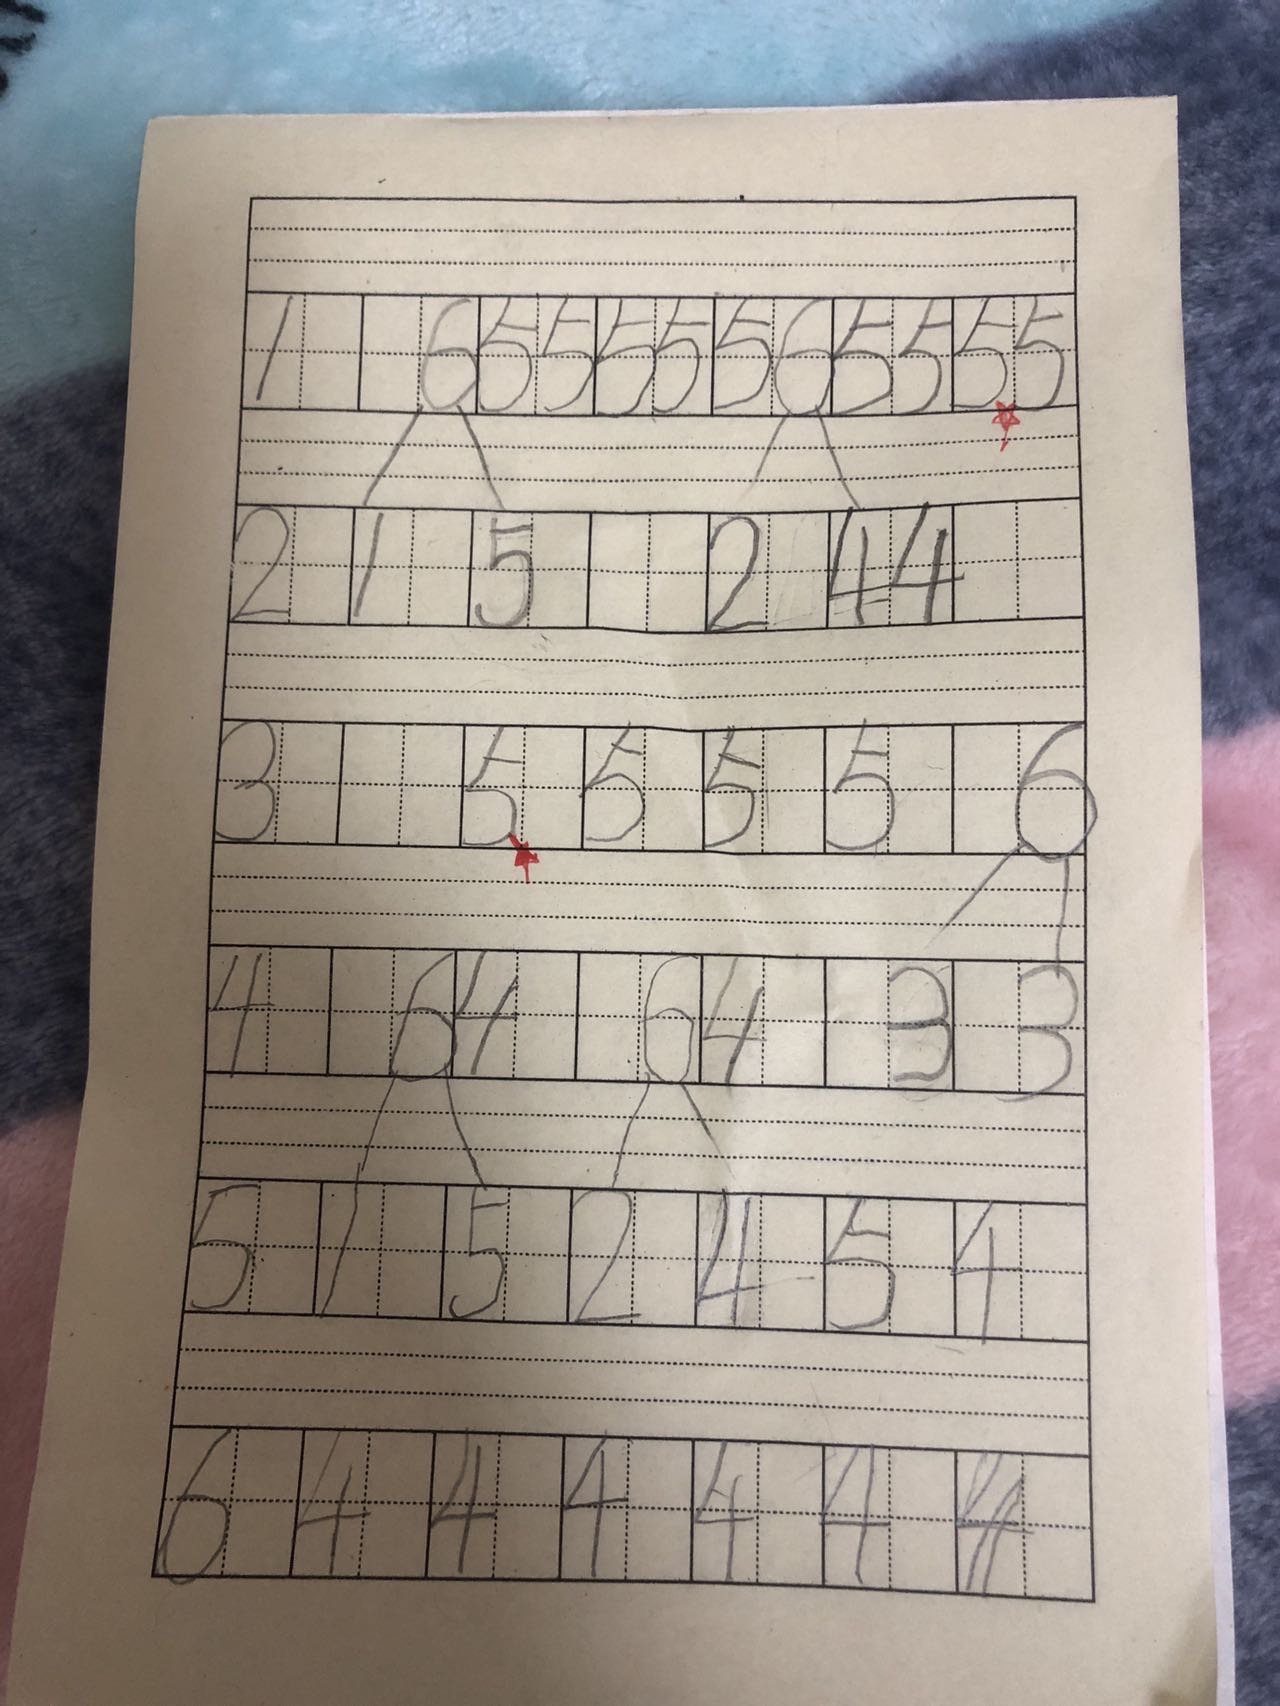 1 6 5 5 5 5 5 6 5 5 5 5
2 1 5 2 4 4
3 5 5 5 5 6
4 6 4 6 4 3 3
5 1 5 2 4 5 4
6 4 4 4 4 4 4